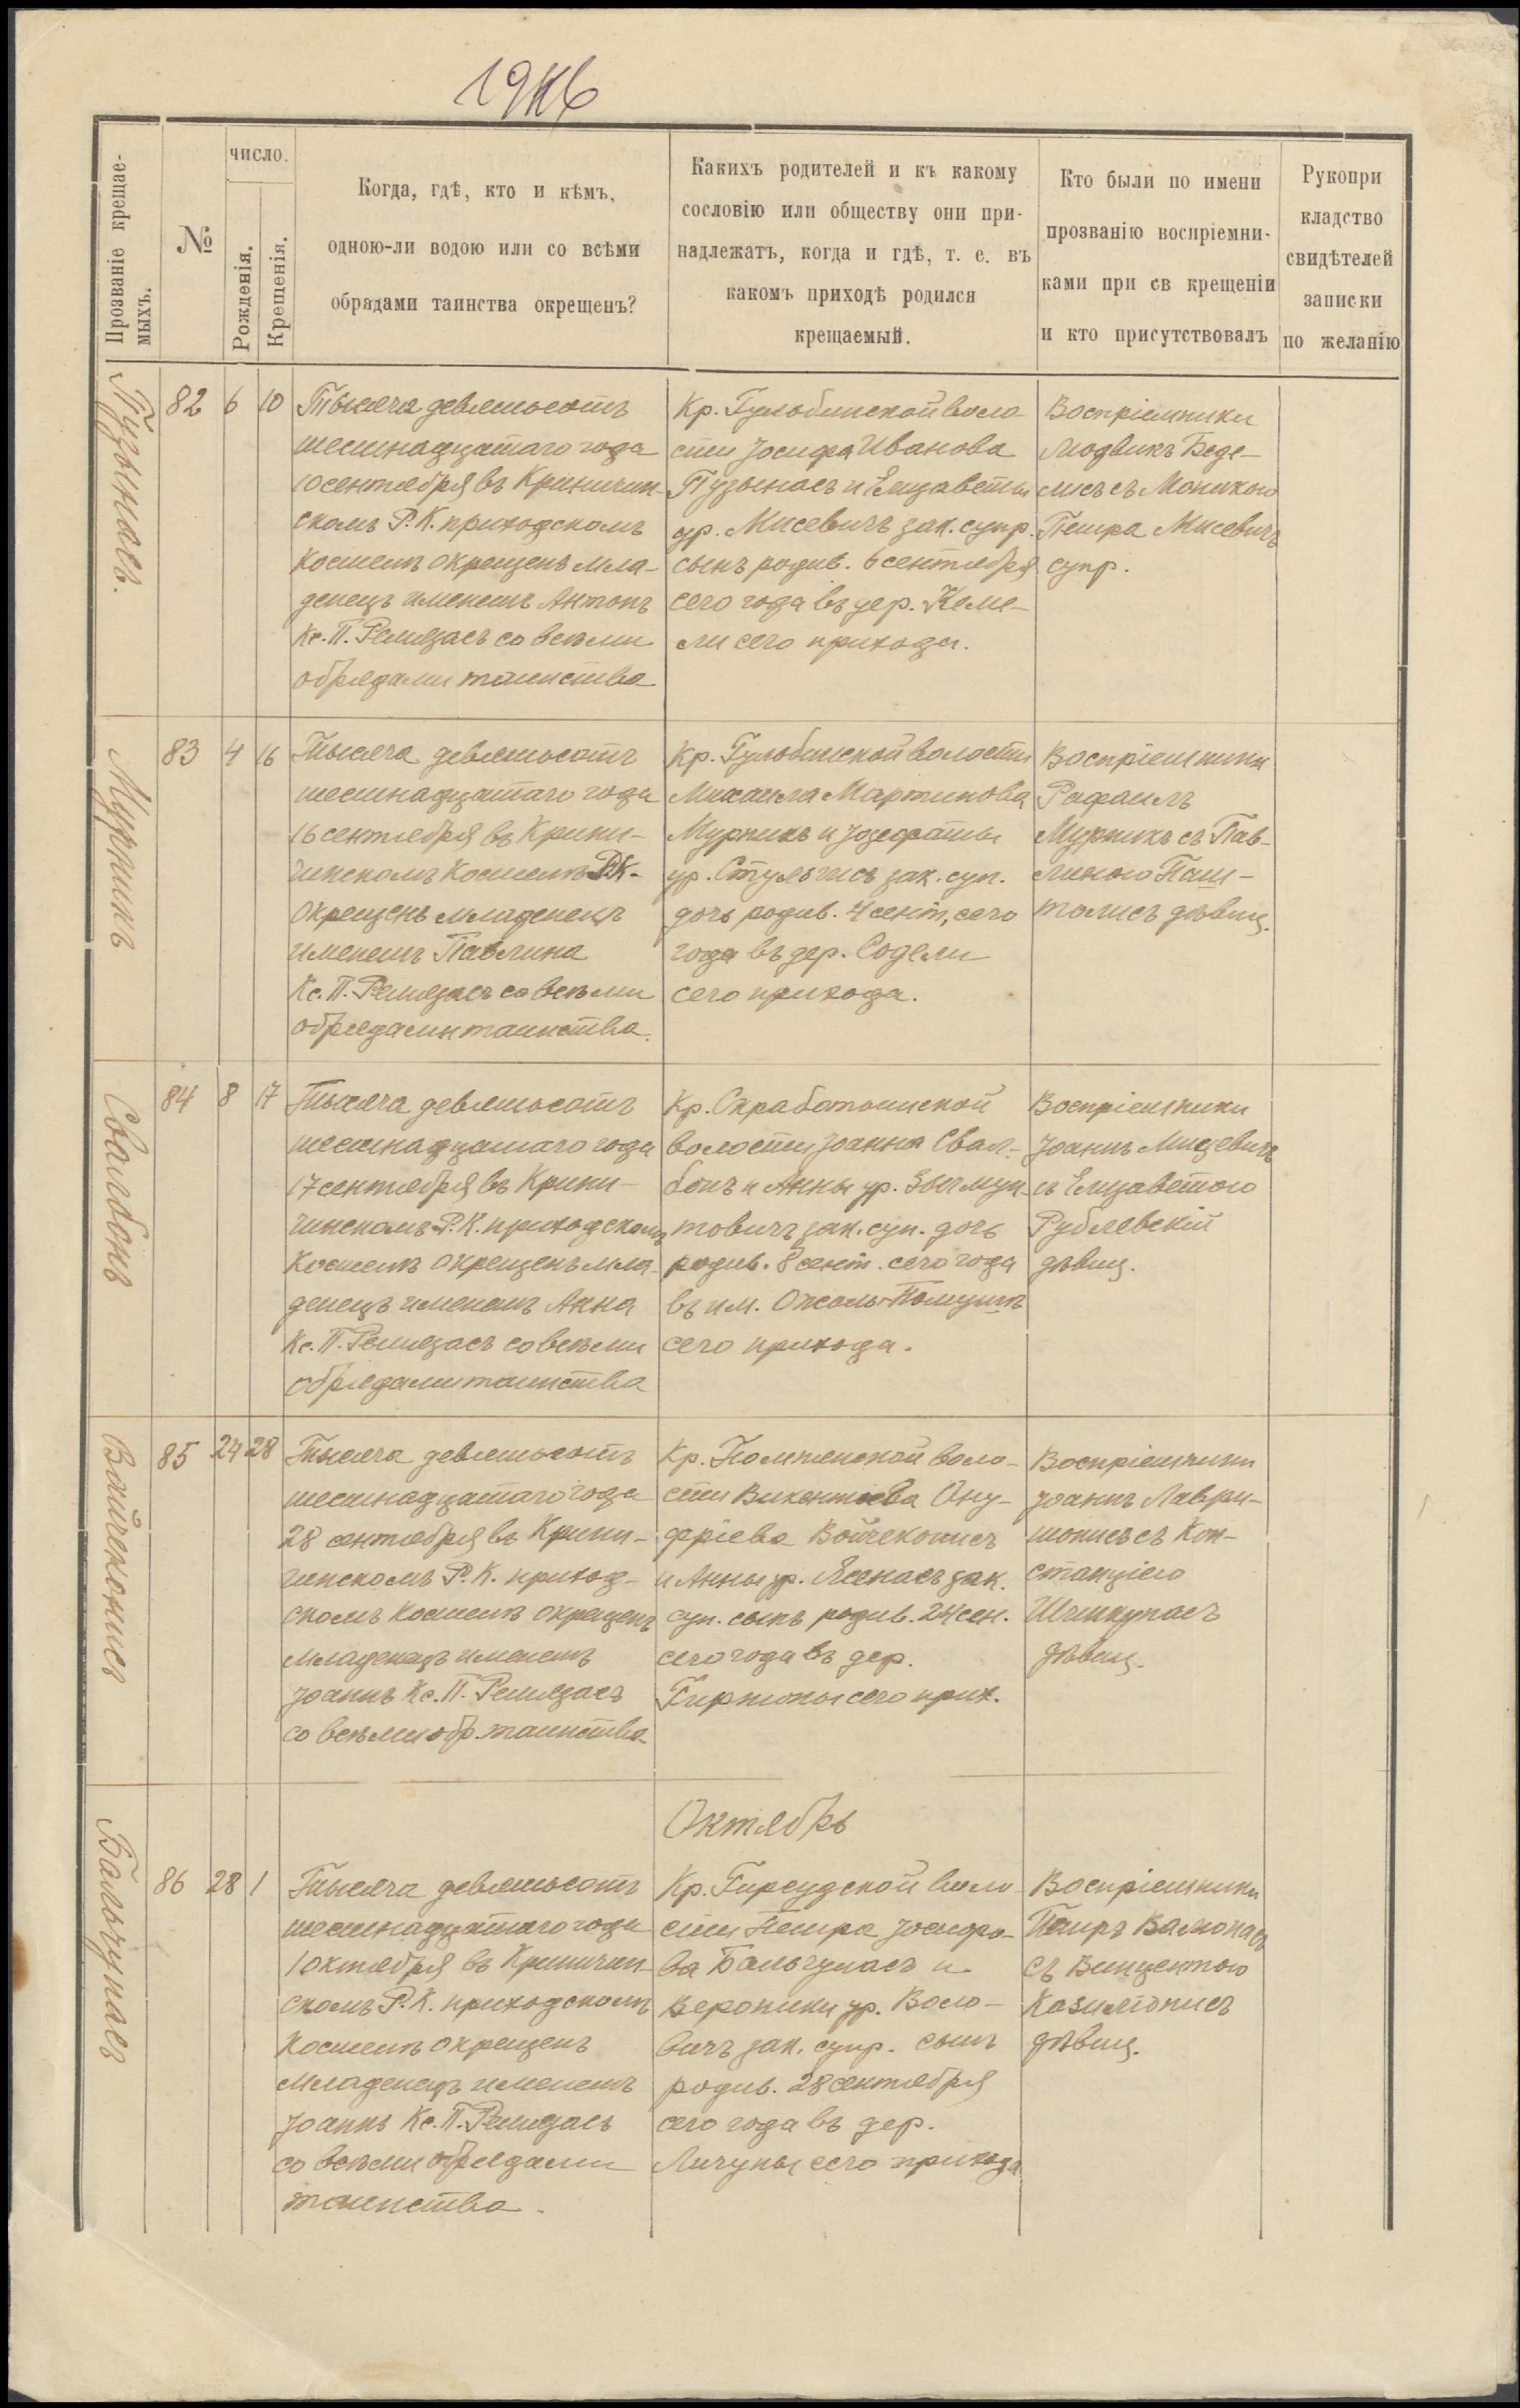 1916
Прозваніе крещае-
мыхъ.
№
число.
Рожденія.
Крещенія.
Когда, гдѣ, кто и кѣмъ,
одною-ли водою или со всѣми
обрядами таинства окрещенъ?
Какихъ родителей и къ какому
сословію или обществу они при-
надлежатъ, когда и гдѣ, т. е. въ
какомъ приходѣ родился
крещаемый.
Кто были по имени
прозванію воспріемни-
ками при св крещеніи
и кто присутствовалъ
Рукопри
кладство
свидѣтелей
записки
по желанію
Пузынасъ.
82 6 10
Тысяча девятьсотъ
шестнадцатаго года
10 сентября въ Криничин-
скомъ Р. К. приходскомъ
костелѣ окрещенъ мла-
денецъ именемъ Антонъ
Кс. П. Ремезасъ со всѣми
обрядами таинства
Кр. Гульбинской воло
сти Іосифа Иванова
Пузынасъ и Елизаветы
ур. Мисевичъ зак. супр.
сынъ родив. 6 сентября
сего года въ дер. Кеме-
ли сего прихода.
Воспріемники
Людвикъ Беде-
лисъ съ Моникою
Петра Мисевичъ
супр.
Мурникъ
83 4 16
Тысяча девятьсотъ
шестнадцатаго года
16 сентября въ Крини-
чинскомъ Костелѣ Р.К.
окрещенъ младенецъ
именемъ Павлина
Кс. П. Ремезасъ со всѣми
обрядами таинства.
Кр. Гульбинской волости
Михаила Мартинова
Мурникъ и Іозефаты
ур. Стульгисъ зак. суп.
дочь родив. 4 сент. сего
года въ дер. Содели
сего прихода.
Воспріемники
Рафаилъ
Мурникъ съ Пав-
линою Паш-
толисъ дѣвиц.
Свалбонъ
84 8 17
Тысяча девятьсотъ
шестнадцатаго года
17 сентября въ Крини-
чинскомъ Р. К. приходскомъ
костелѣ окрещенъ мла-
денецъ именемъ Анна
Кс. П. Ремезасъ со всѣми
обрядами таинства
Кр. Скработишской
волости Іоанна Свал-
бонъ и Анны ур. Зыгмун-
товичъ зак. суп. дочь
родив. 8 сент. сего года
въ им.
сего прихода.
Воспріемники
Іоаннъ Мицевичъ
съ Елизаветою
Рублевскій
дѣвиц.
Войчеконисъ
85 24 28
Тысяча девятьсотъ
шестнадцатаго года
28 сентября въ Крини-
чинскомъ Р. К. приход-
скомъ костелѣ окрещенъ
младенецъ именемъ
Іоаннъ Кс. П. Ремезасъ
со всѣми обр. таинства.
Кр. воло-
сти Викентіева Ону-
фріева Войчеконисъ
и Анны ур. Ясенасъ зак.
суп. сынъ родив. 24 сен.
сего года въ дер.
Гиртюны сего прих.
Воспріемники
Іоаннъ Лаври-
съ Кон-
станціею
дѣвиц.
Октябрь
Бальчунасъ
86 28 1
Тысяча девятьсотъ
шестнадцатаго года
1 октября въ Криничин-
скомъ Р. К. приходскомъ
костелѣ окрещенъ
младенецъ именемъ
Іоаннъ Кс. П. Ремезасъ
со всѣми обрядами
таинства.
Кр. Гирсудской воло-
сти Петра Іосифо-
ва Бальчунасъ и
Вероники ур. Воло-
вичъ зак. супр. сынъ
родив. 28 сентября
сего года въ дер.
Личуны сего прихода
Воспріемники
Петръ Валюнасъ
съ Винцентою
Казилюнисъ
дѣвиц.